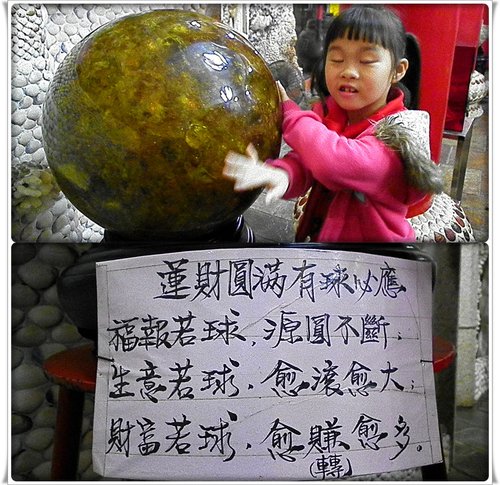 蓮財圓滿有球必應
福報若球,源圓不斷;
生意若球,愈滾愈大;
財富若球,愈賺愈多。
(轉)